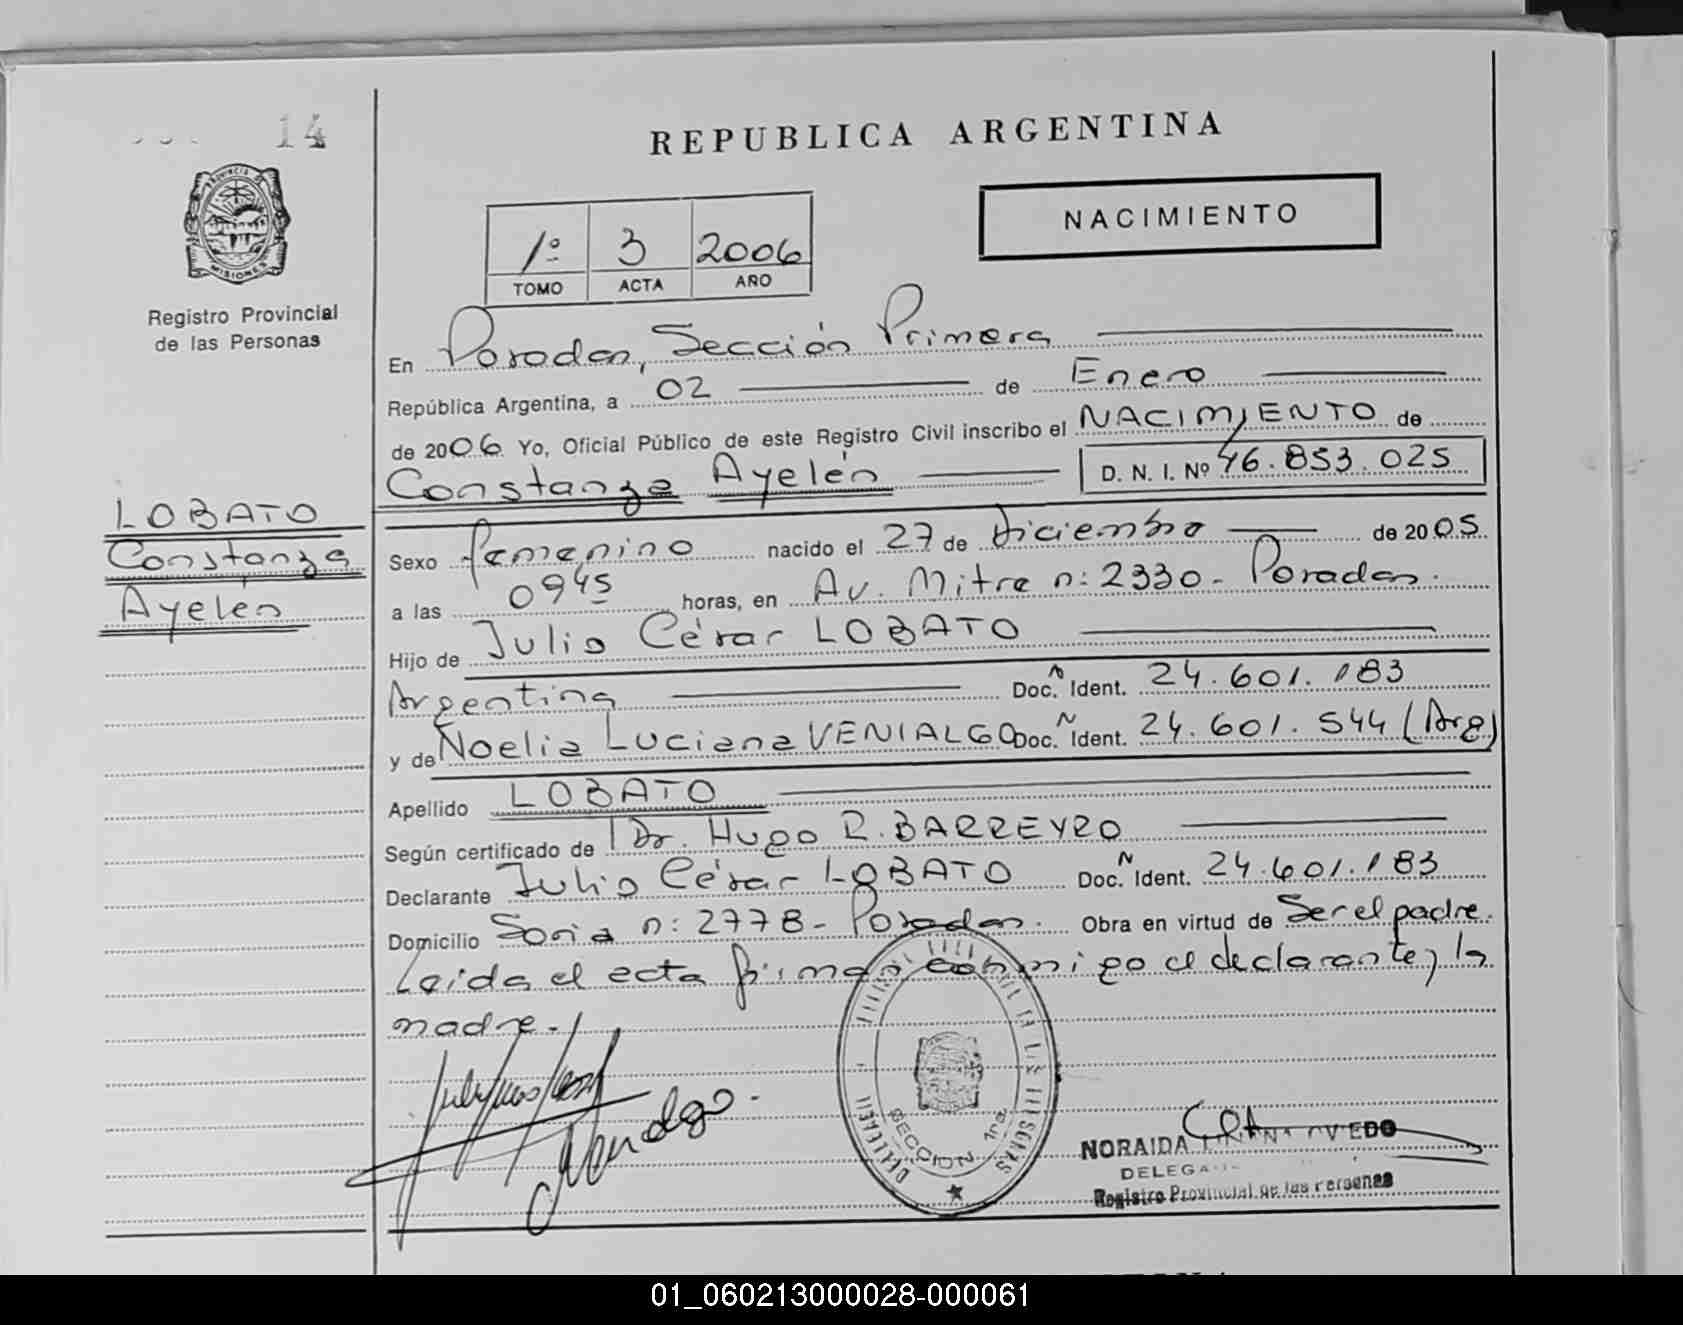 14
REPUBLICA ARGENTINA
NACIMIENTO
1º 3 2006
TOMO ACTA AÑO
PROVINCIA DE MISIONES
Registro Provincial
de las Personas
En Posadas, Sección Primera
República Argentina, a 02 de Enero
de 2006 Yo, Oficial Público de este Registro Civil inscribo el NACIMIENTO de
Constanza Ayelén D. N. I. Nº 46.853.025
LOBATO
Constanza
Ayelén
Sexo femenino nacido el 27 de Diciembre de 2005
a las 0945 horas, en Av. Mitre n: 2330 - Posadas.
Hijo de Julio César LOBATO
Argentina Doc. Ident. 24.601.183
y de Noelia Luciana VENIALGO Doc. Ident. 24.601.544 (Arg)
Apellido LOBATO
Según certificado de Dr. Hugo R. BARREYRO
Declarante Julio César LOBATO Doc. Ident. 24.601.183
Domicilio Soria n: 2778 - Posadas. Obra en virtud de Ser el padre.
Leída el acta firman conmigo el declarante y la
madre.-
SECCION 1ra
NORAIDA OVIEDO
DELEGA
Registro Provincial de las Personas
01_060213000028-000061